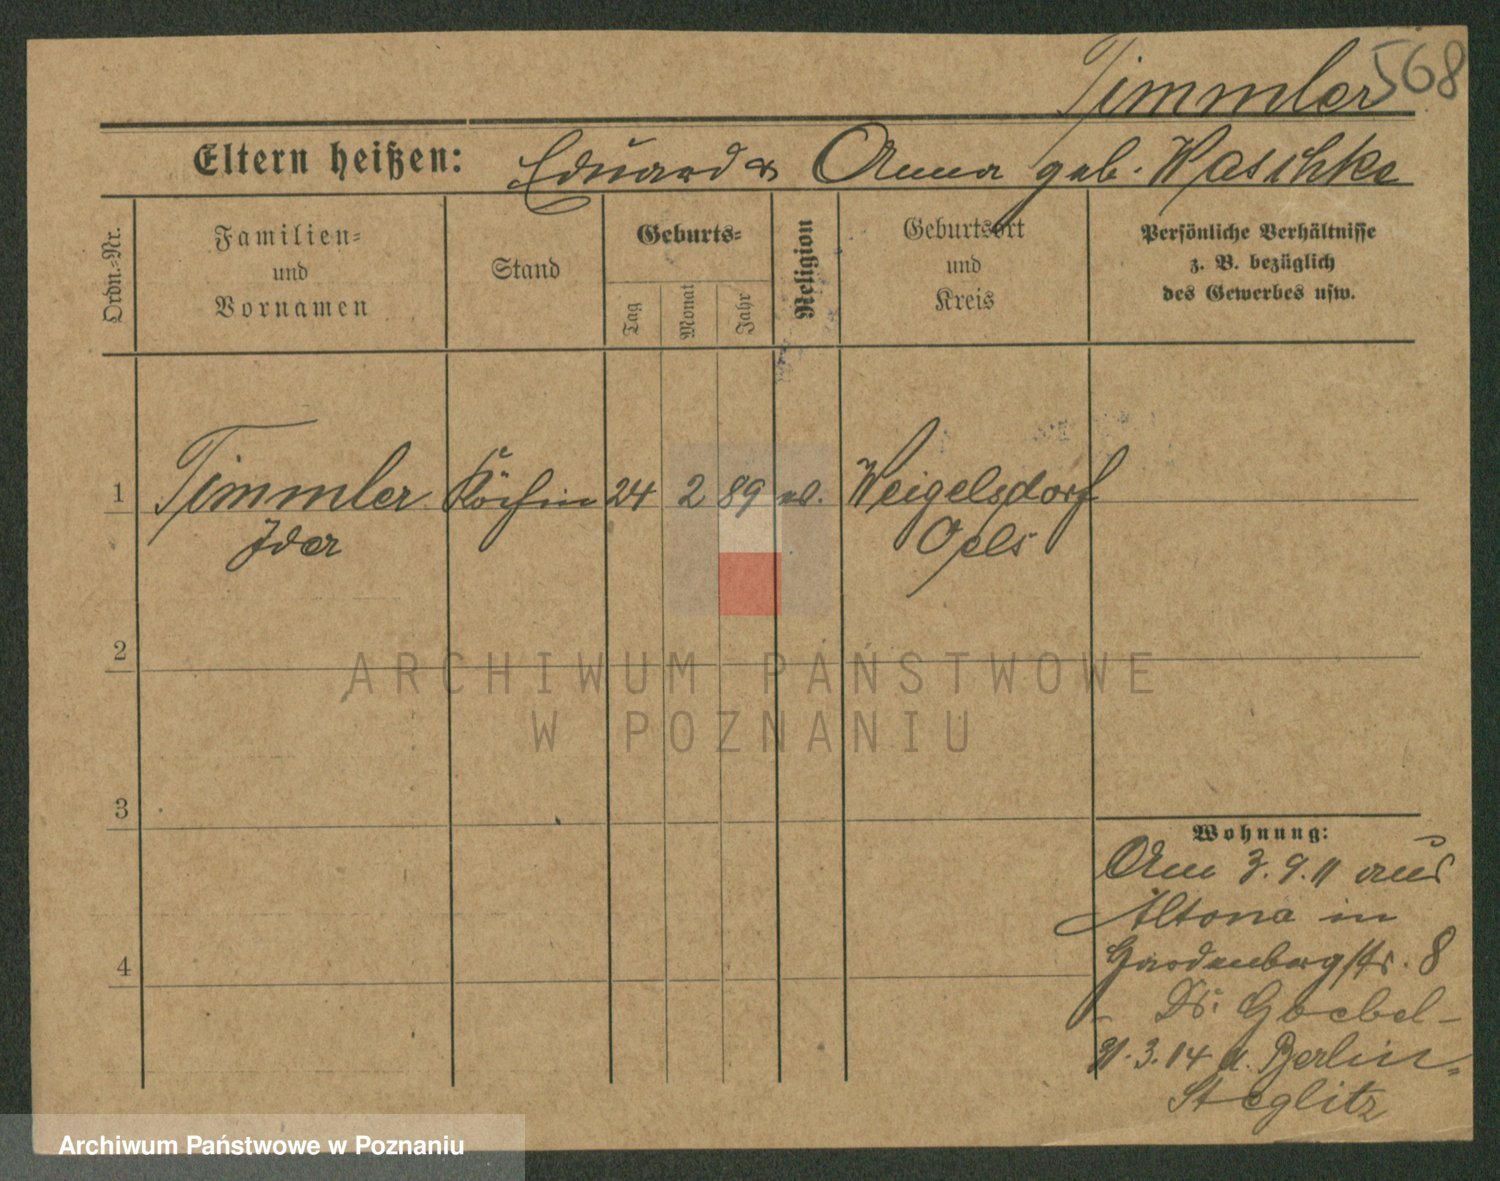 Timmler
568
Eltern heißen: Eduard & Anna geb. Waschke
Ordn.-Nr.
Familien-
und
Vornamen
Stand
Geburts-
Tag
Monat
Jahr
Religion
Geburtsort
und
Kreis
Persönliche Verhältnisse
z. B. bezüglich
des Gewerbes usw.
1 Timmler Köchin 24 2 89 ev. Weigelsdorf
Ida Oels
2
3
4
Wohnung:
Am 3.9.11 aus
Altona in
Hardenbergstr. 8
- Dr. Goebel -
31.3.14 n. Berlin-
Steglitz
ARCHIWUM PAŃSTWOWE
W POZNANIU
Archiwum Państwowe w Poznaniu